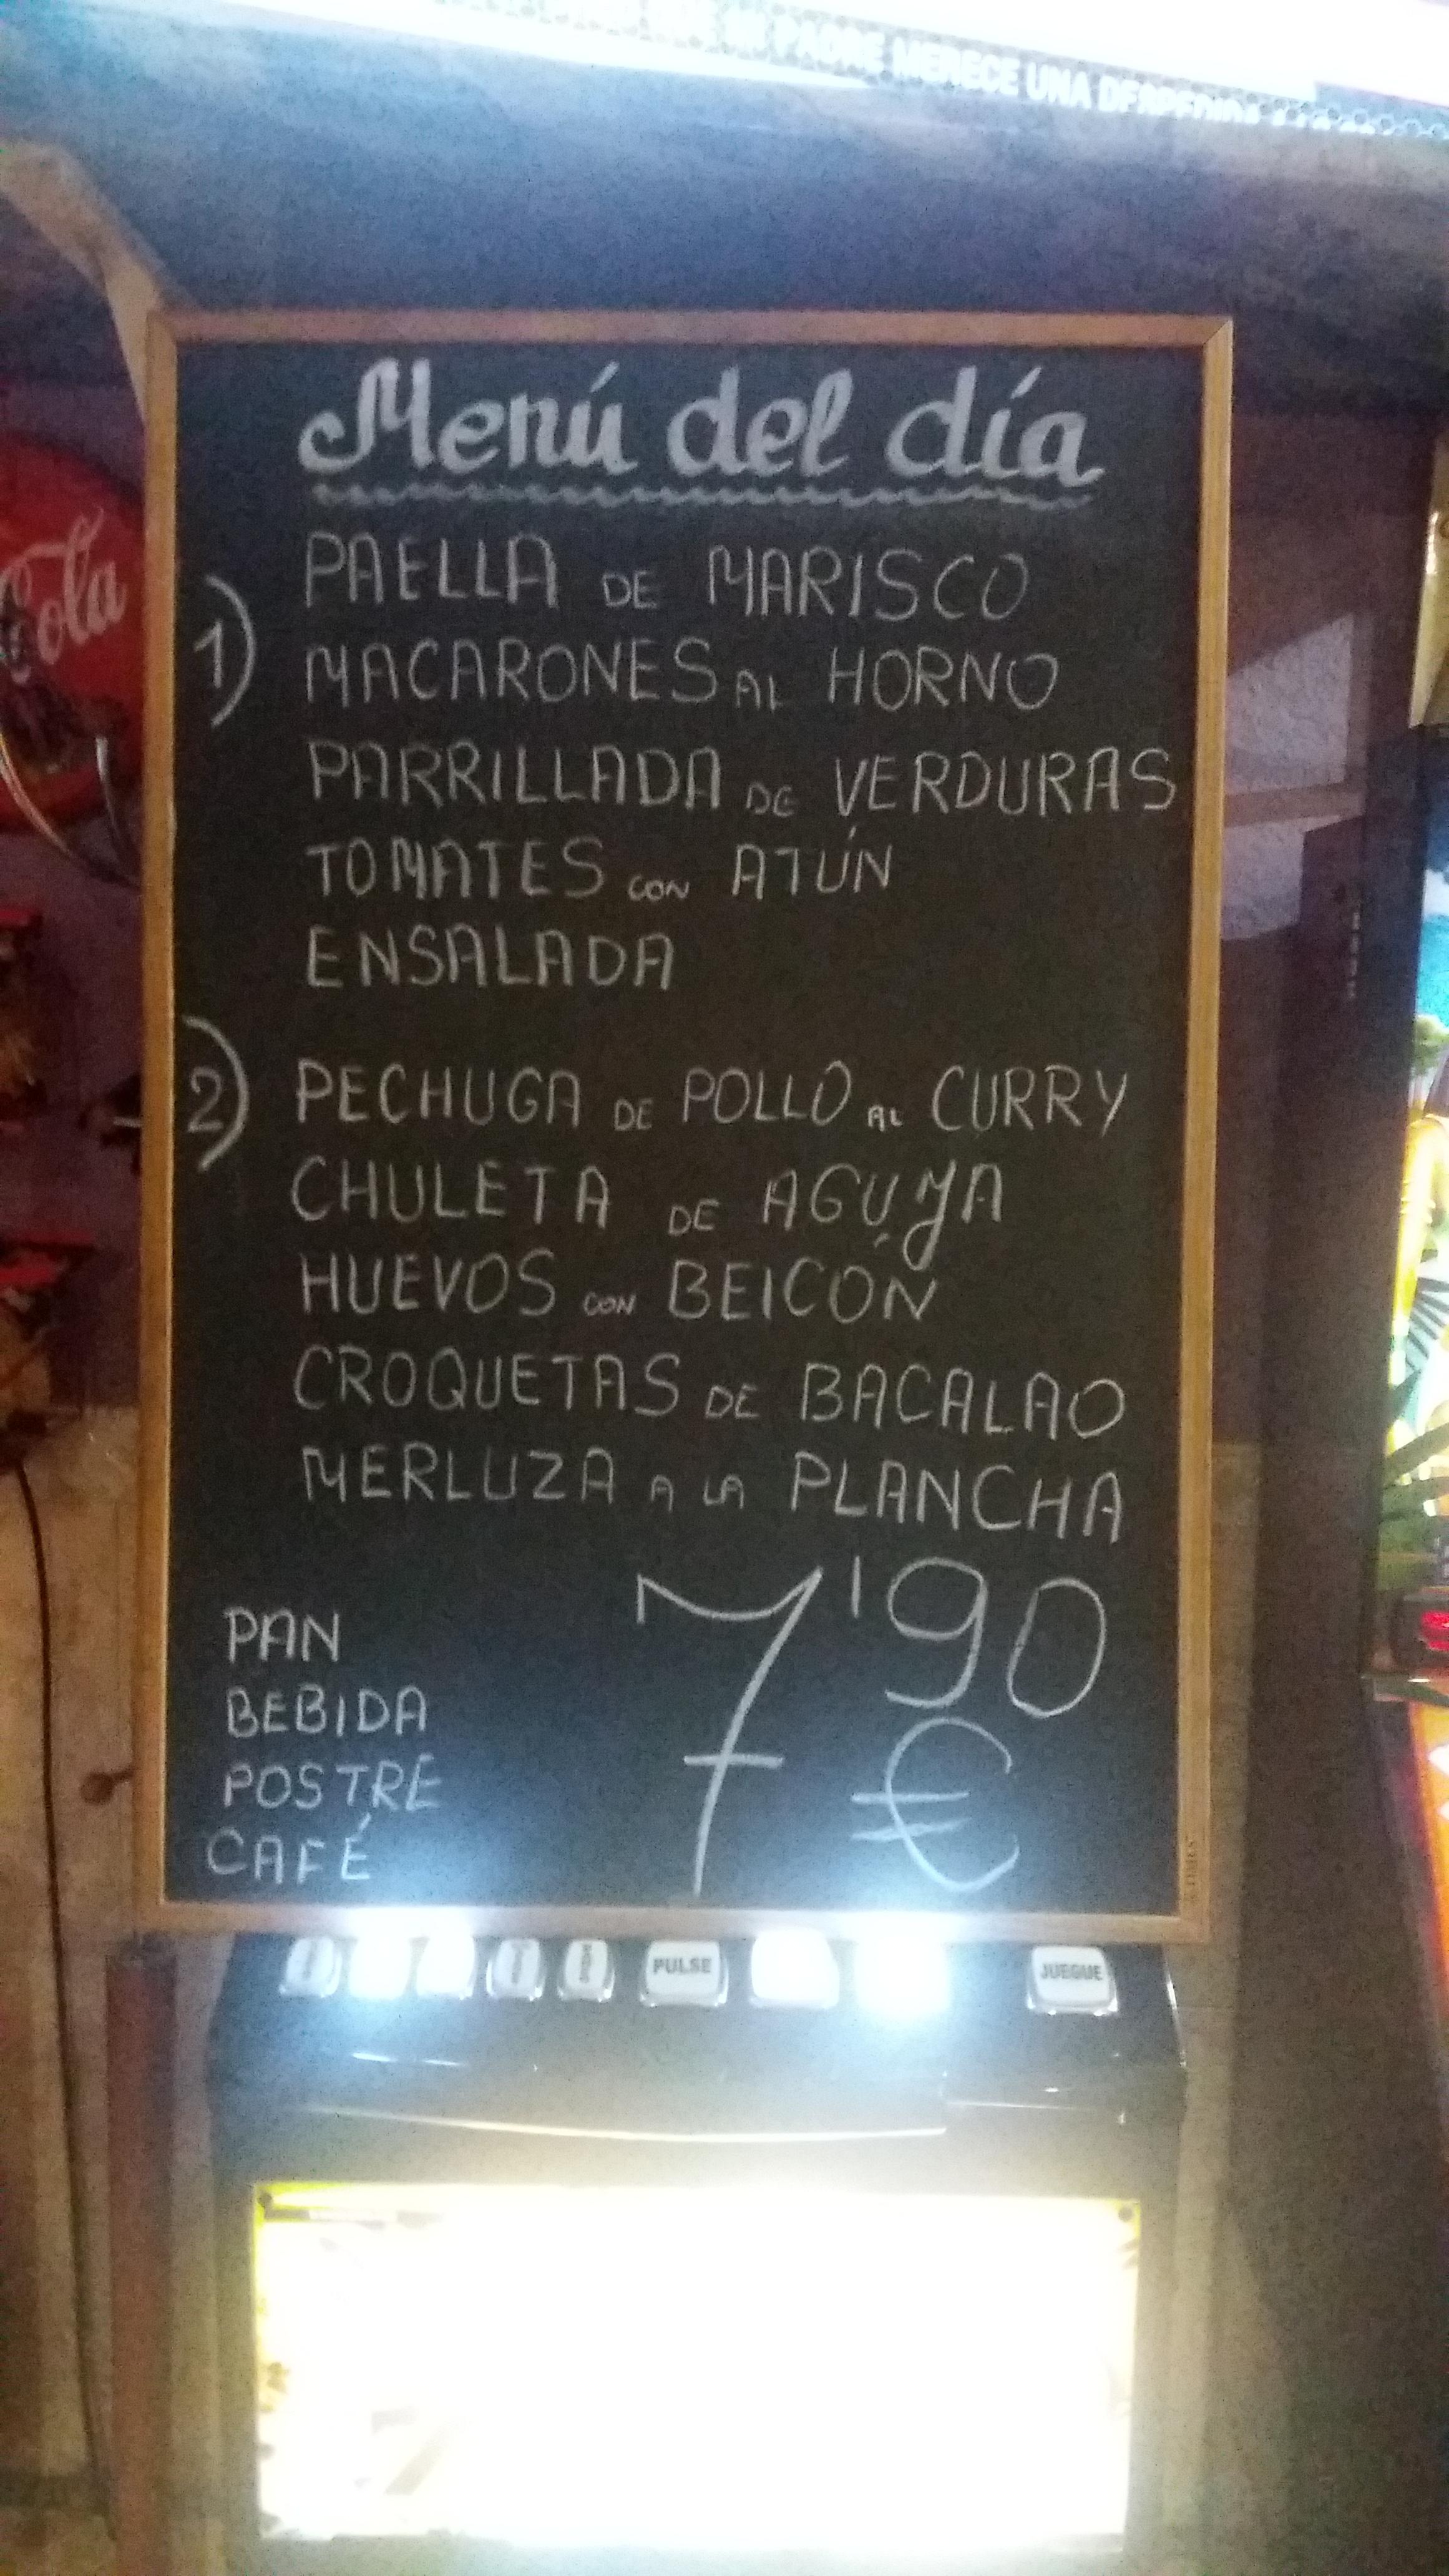 PADRE MERECE UNA DESPEDIDA
Cola
Menú del día
1) PAELLA DE MARISCO
MACARONES AL HORNO
PARRILLADA DE VERDURAS
TOMATES CON ATÚN
ENSALADA
2) PECHUGA DE POLLO AL CURRY
CHULETA DE AGUJA
HUEVOS CON BEICÓN
CROQUETAS DE BACALAO
MERLUZA A LA PLANCHA
7'90 €
PAN
BEBIDA
POSTRE
CAFÉ
PULSE
JUEGUE